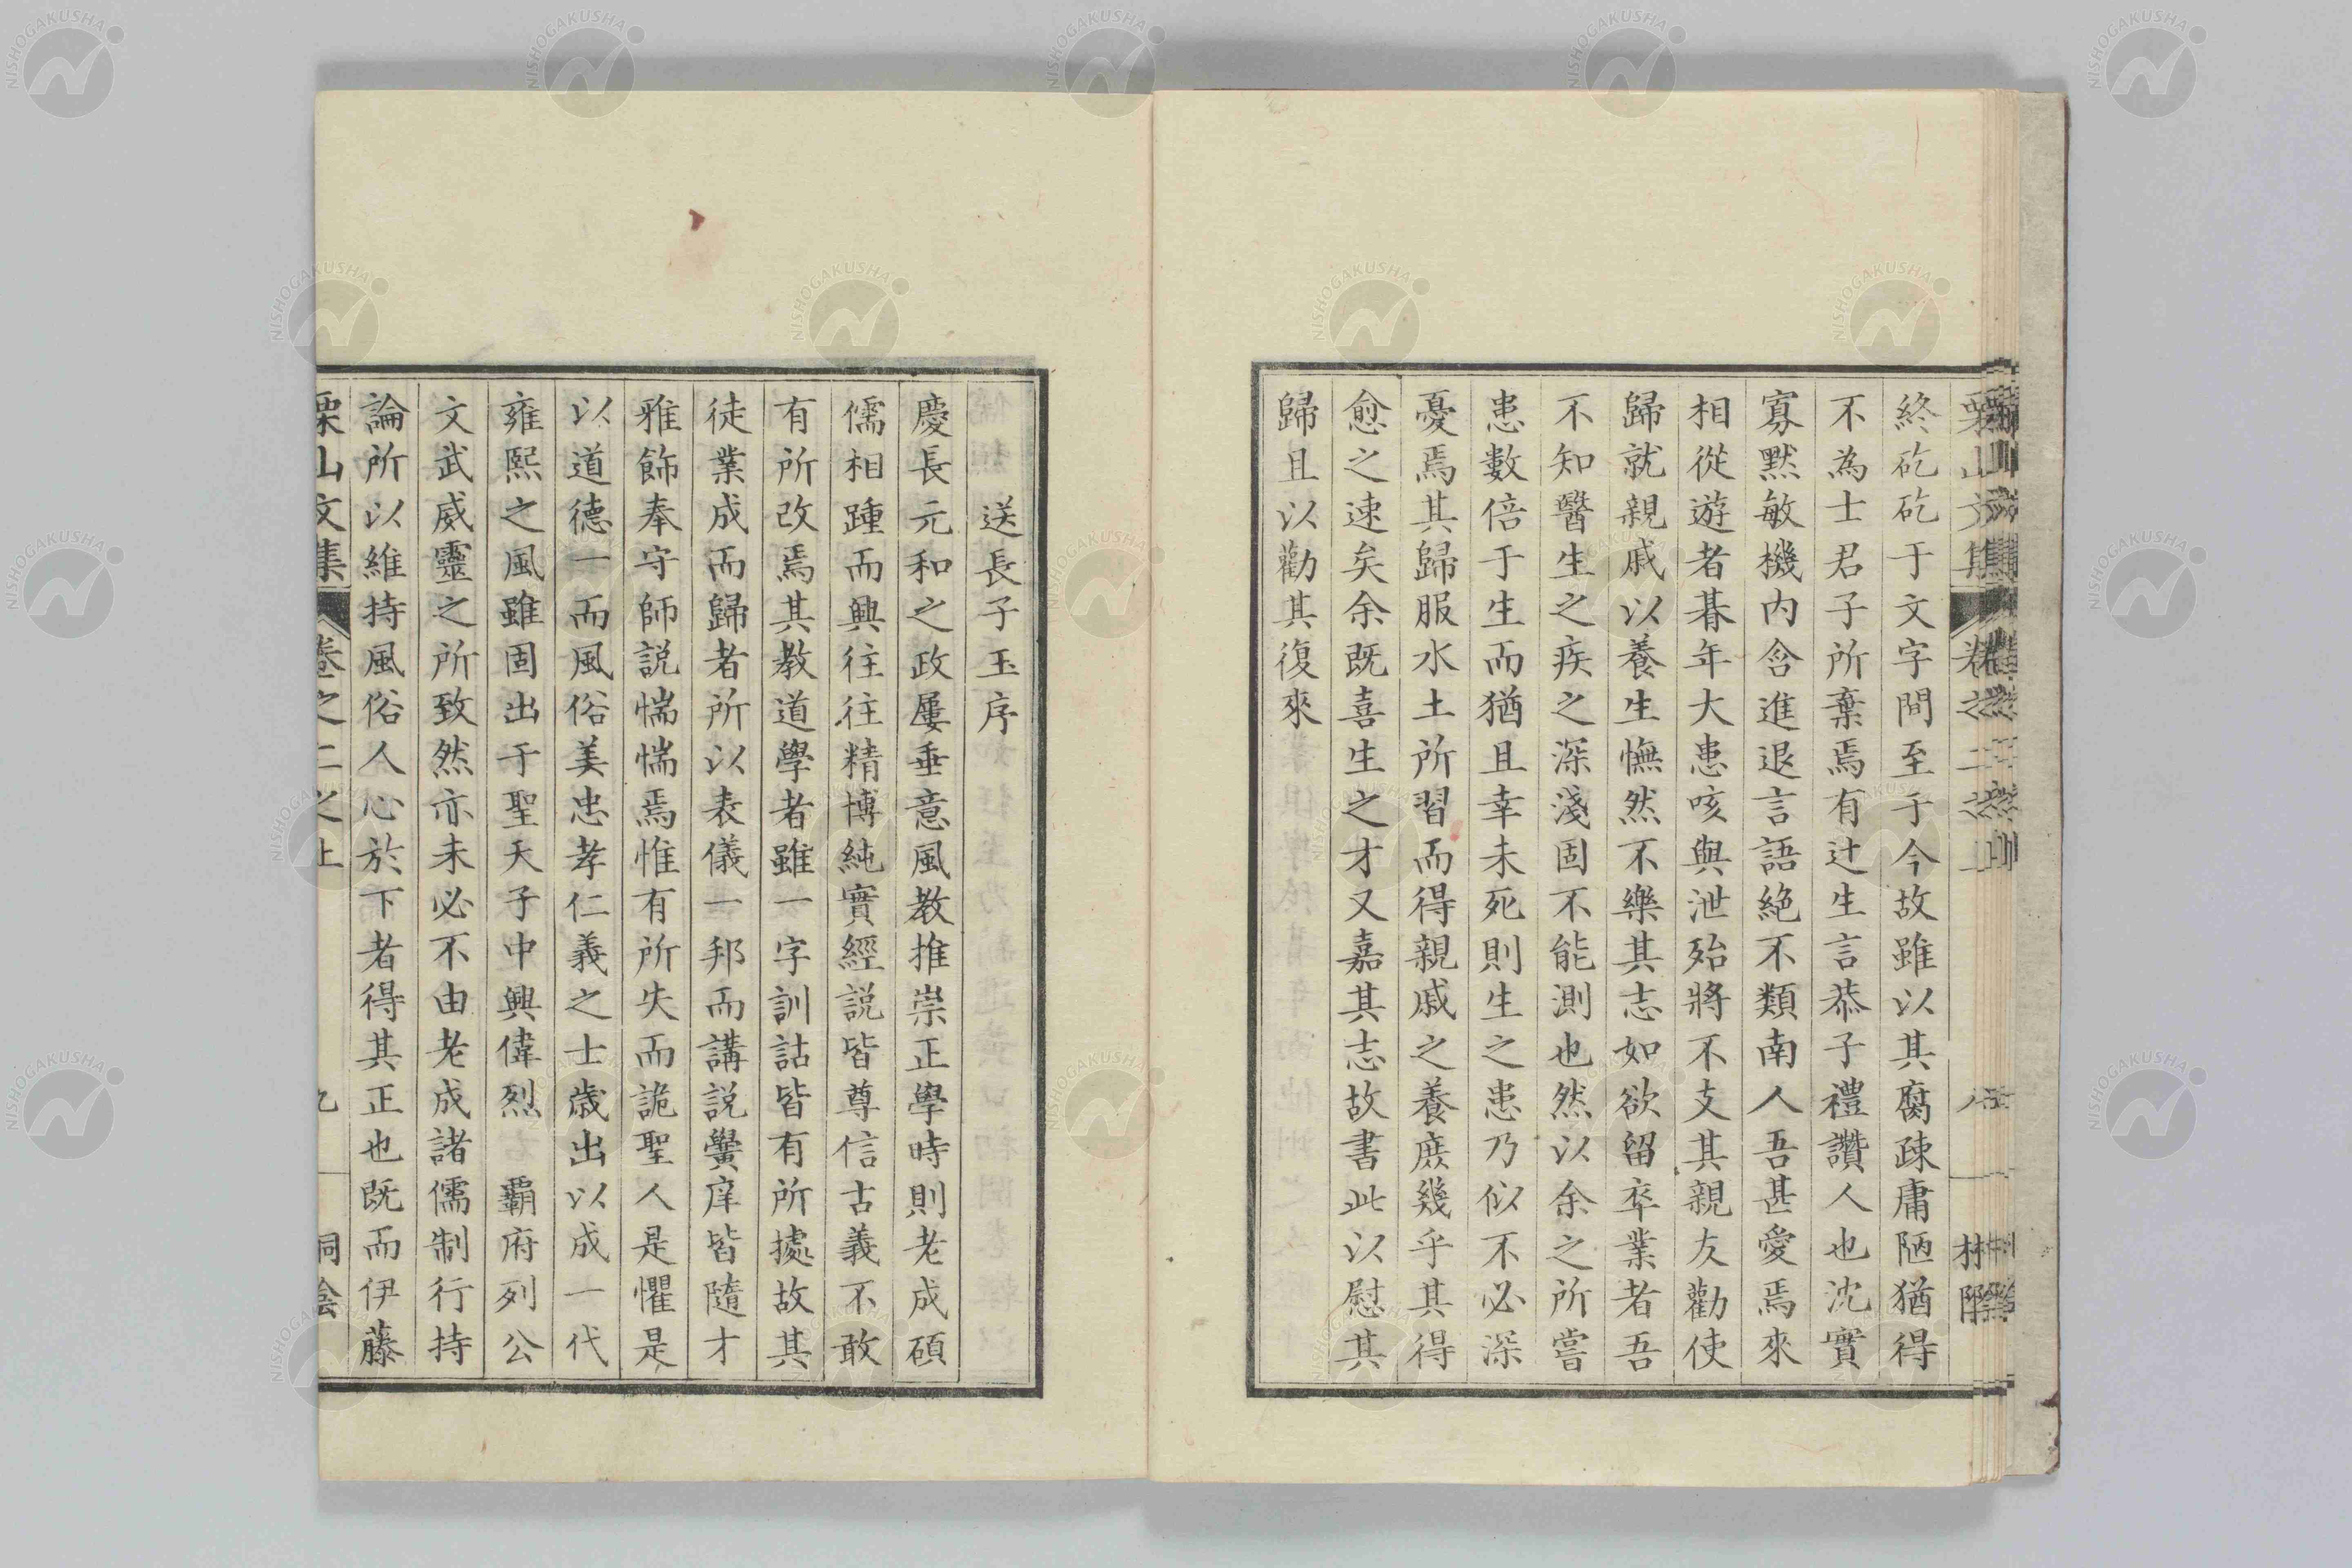 終矻矻于文字間至于今故雖以其腐疎庸陋猶得
不為士君子所棄焉有辻生言恭子禮讚人也沈實
寡默敏機内含進退言語絶不類南人吾甚愛焉來
相從遊者朞年大患咳與泄殆將不支其親友勸使
歸就親戚以養生憮然不樂其志如欲留卒業者吾
不知醫生之疾之深淺固不能測也然以余之所嘗
患數倍于生而猶且幸未死則生之患乃似不必深
憂焉其歸服水土所習而得親戚之養庶幾乎其得
愈之速矣余既喜生之才又嘉其志故書此以慰其
歸且以勸其復來
送長子玉序
慶長元和之政屢垂意風教推崇正學時則老成碩
儒相踵而興往往精博純實經説皆尊信古義不敢
有所改焉其教道學者雖一字訓詁皆有所據故其
徒業成而歸者所以表儀一邦而講説黌庠皆隨才
雅飾奉守師説惴惴焉惟有所失而詭聖人是懼是
以道德一而風俗美忠孝仁義之士歳出以成一代
雍熙之風雖固出于聖天子中興偉烈 覇府列公
文武威靈之所致然亦未必不由老成諸儒制行持
論所以維持風俗人心於下者得其正也既而伊藤
栗山文集 卷之二之上 九
NISHOGAKUSHA